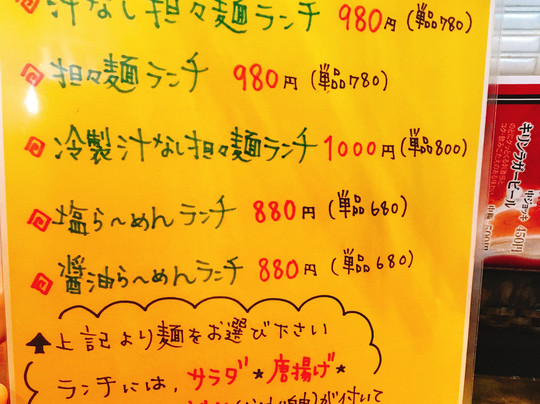 汁なし担々麺ランチ 980円(単品780)
担々麺ランチ 980円(単品780)
冷製汁なし担々麺ランチ 1000円(単品800)
塩ら〜めんランチ 880円(単品680)
醤油ら〜めんランチ 880円(単品680)
上記より麺をお選び下さい
ランチには、サラダ★唐揚げ★
が付いて
キリンラガービール
中ジョッキ 450円